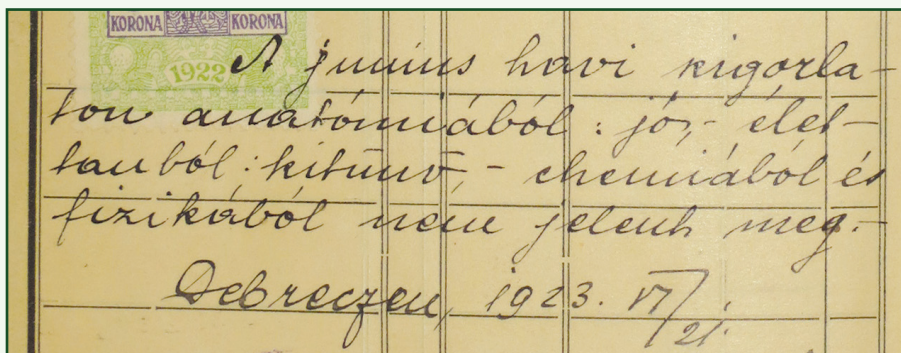 KORONA KORONA
1922
A junius havi kigorla-
ton anatómiából: jó,- élet-
tanból: kitünő,- chemiából és
fizikából nem jelent meg.-
Debreczen, 1923. VI/21.